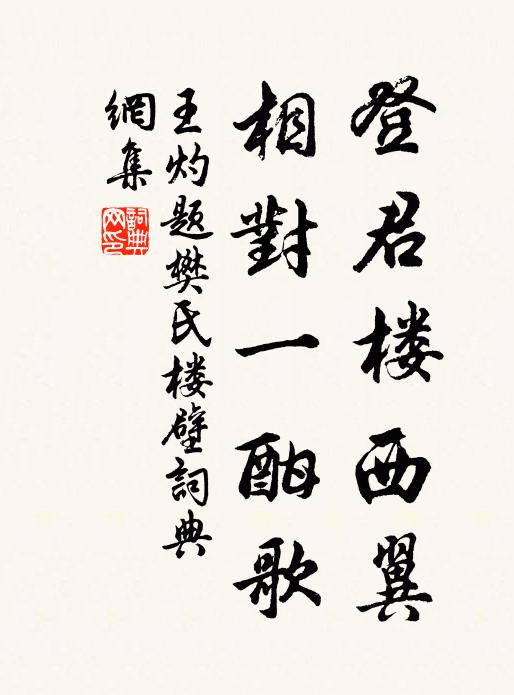 登君楼西翼
相對一酣歌
王灼题樊氏楼壁詞典
網集
詞典
网印